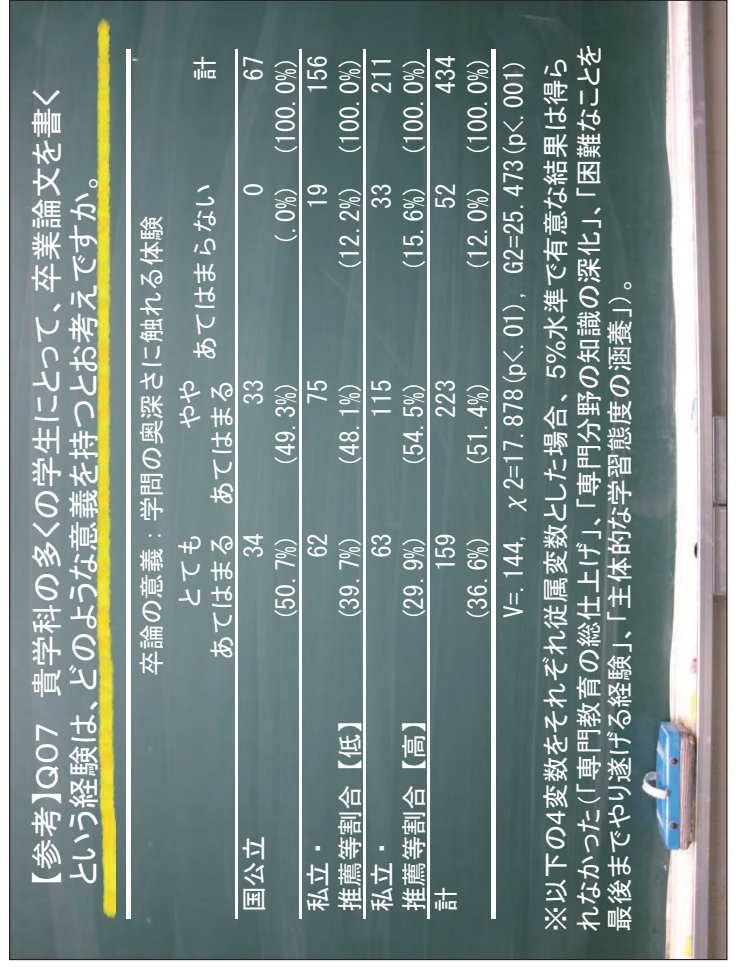 【参考】Q07　貴学科の多くの学生にとって、卒業論文を書く
という経験は、どのような意義を持つとお考えですか。
卒論の意義：学問の奥深さに触れる体験
とても あてはまる　やや あてはまる　あてはまらない　計
国公立　34　33　0　67
(50.7%)　(49.3%)　(.0%)　(100.0%)
私立・　62　75　19　156
推薦等割合【低】　(39.7%)　(48.1%)　(12.2%)　(100.0%)
私立・　63　115　33　211
推薦等割合【高】　(29.9%)　(54.5%)　(15.6%)　(100.0%)
計　159　223　52　434
(36.6%)　(51.4%)　(12.0%)　(100.0%)
V=.144,　χ2=17.878(p<.01),　G2=25.473(p<.001)
※以下の4変数をそれぞれ従属変数とした場合、5%水準で有意な結果は得ら
れなかった(「専門教育の総仕上げ」、「専門分野の知識の深化」、「困難なことを
最後までやり遂げる経験」、「主体的な学習態度の涵養」)。